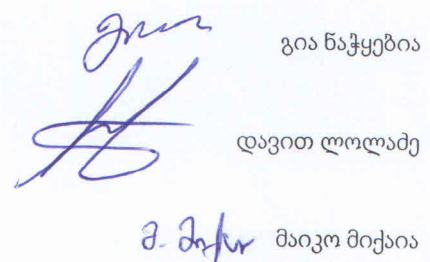 გია ნაჭყებია
დავით ლოლაძე
მ. მიქაია მაიკო მიქაია